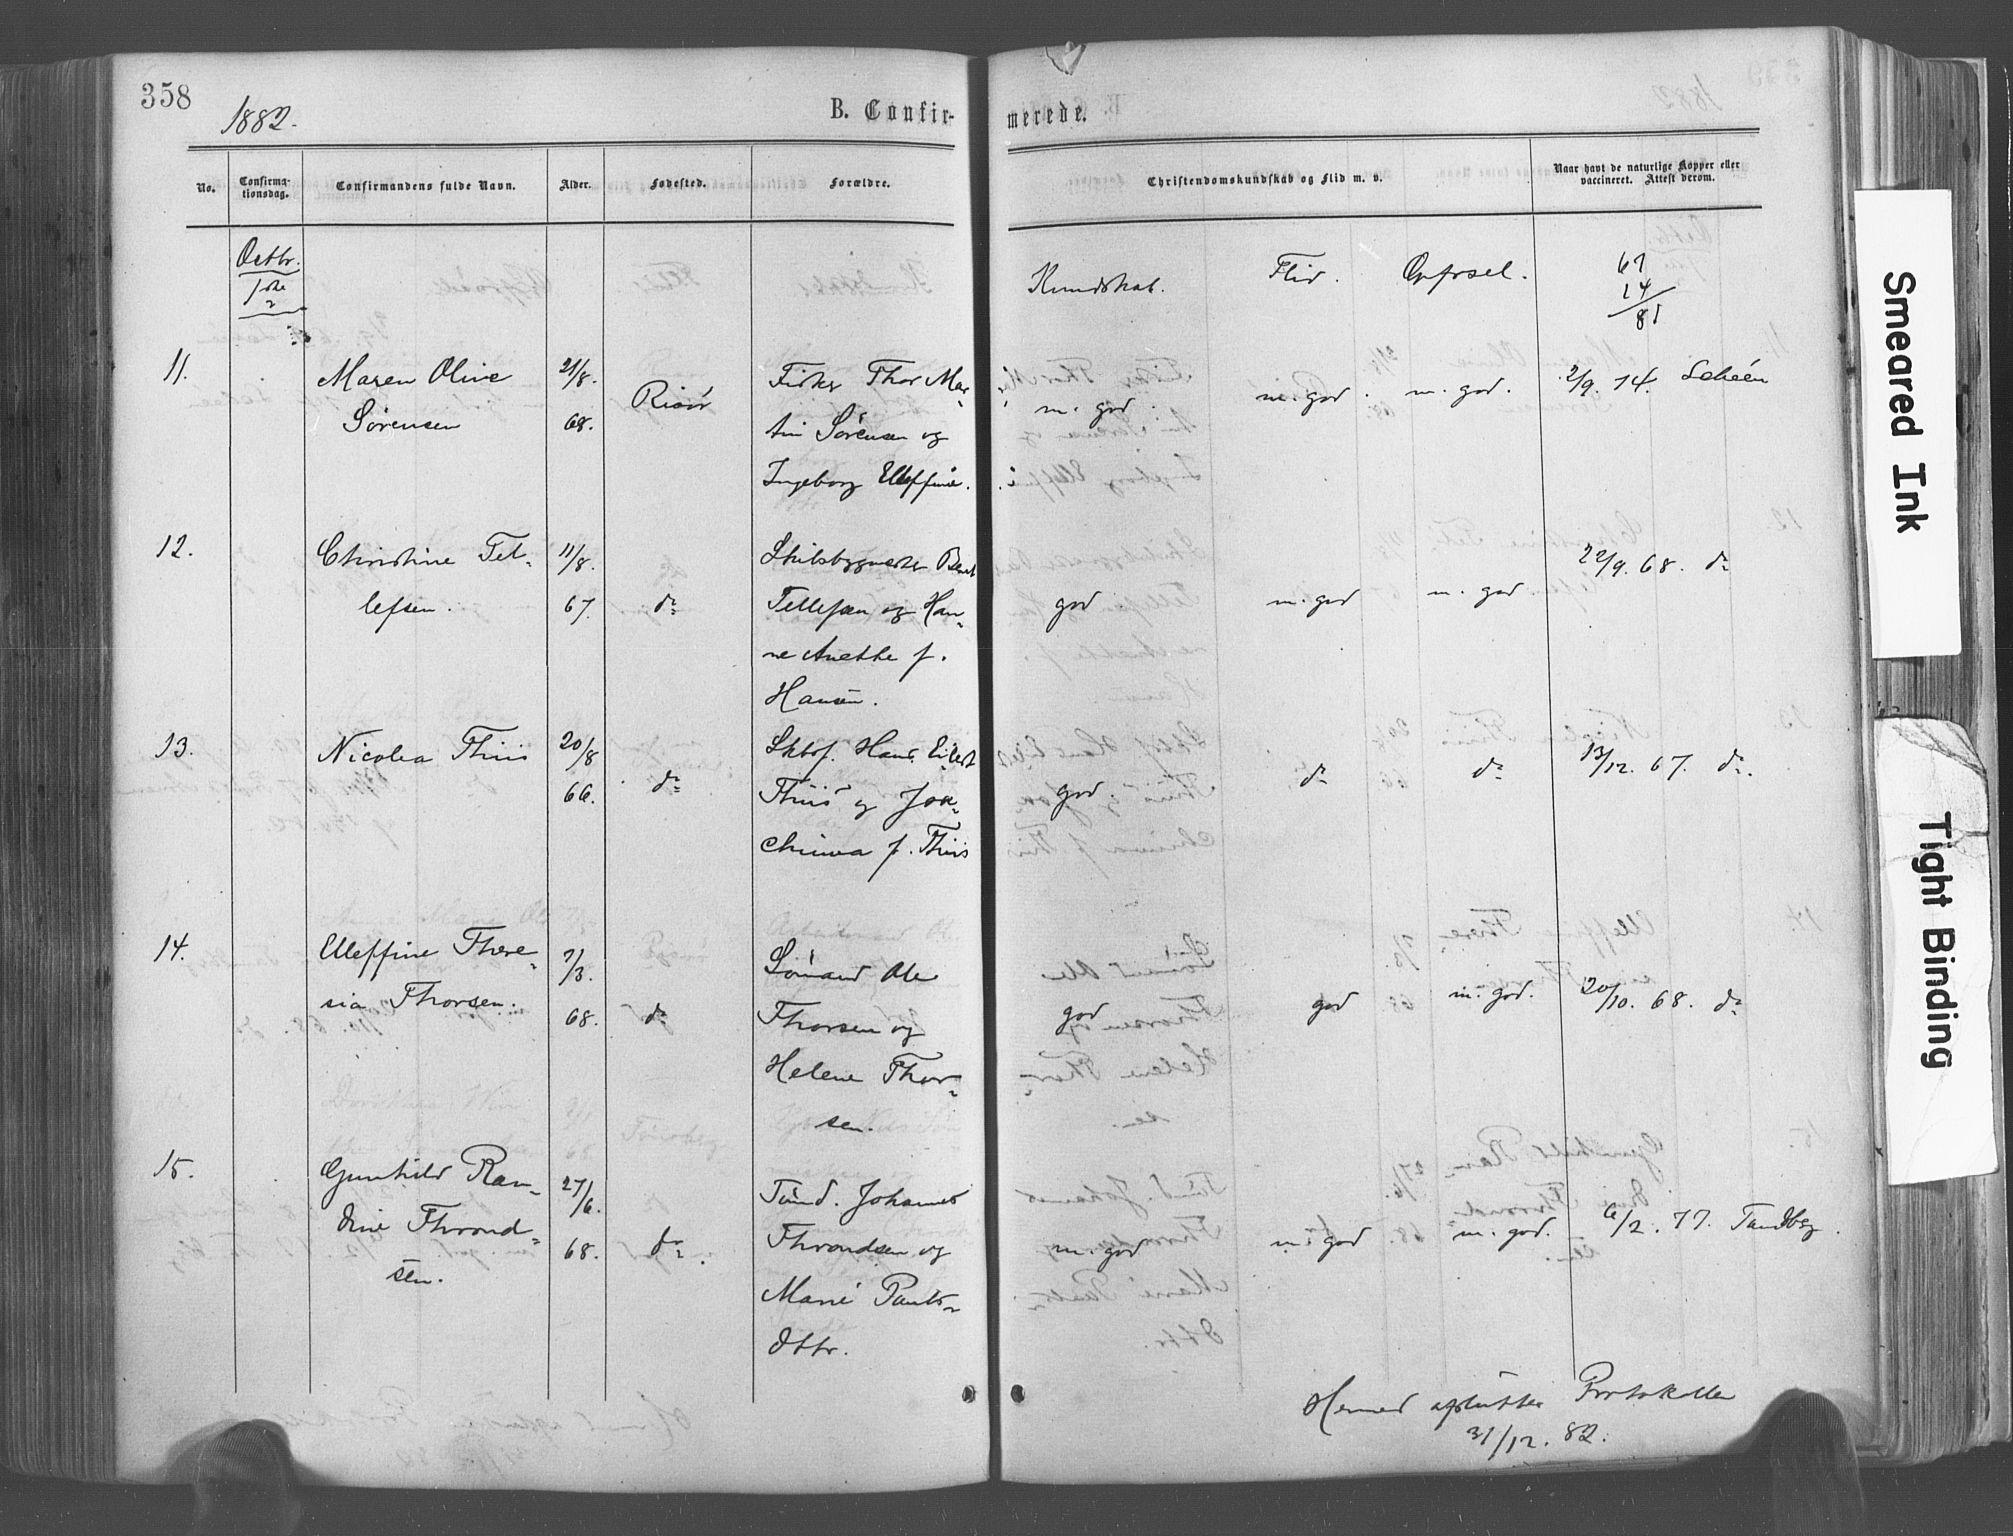 358
1882.
B. Confir-
merede.
No.
Confirma-
tionsdag.
Confirmandens fulde Navn.
Alder.
Fødested.
Forældre.
Christendomskundskab og Flid m. v.
Naar havt de naturlige Kopper eller
vaccineret. Attest derom.
Octbr.
1ste
Kundskab.
Flid.
Opførsel.
67
14
81
11.
Maren Olive
Sørensen
21/8.
68.
Risør
Fisker Thor Mar-
tin Sørensen og
Ingeborg Elleffine.
m. god.
m. god.
m. god.
2/9. 74. Scheen
12.
Christine Tel-
lefsen.
11/8.
67.
do
Skibsbygmester Bent
Tellefsen og Han-
ne Anethe f.
Hansen.
god
m. god
m. god
22/9. 68. do
13.
Nicolea Thiis
20/8
66.
do
Skbsf. Hans Eilert
Thiis og Joa-
chimva f. Thiis
god.
do
do
13/12. 67. do.
14.
Elleffine There-
sia Thorsen.
7/3.
68.
do
Sømand Ole
Thorsen og
Helene Thor-
sen.
god
god
m. god.
20/10. 68. do
15.
Gunhild Ran-
dine Thrond-
sen.
27/6.
68.
do.
Tømd. Johannes
Throndsen og
Marie Pauls-
dttr.
m. god
m. god
m. god.
6/2. 77. Tandberg.
Hermed afsluttes Protokollen
31/12. 82.
Smeared Ink
Tight Binding